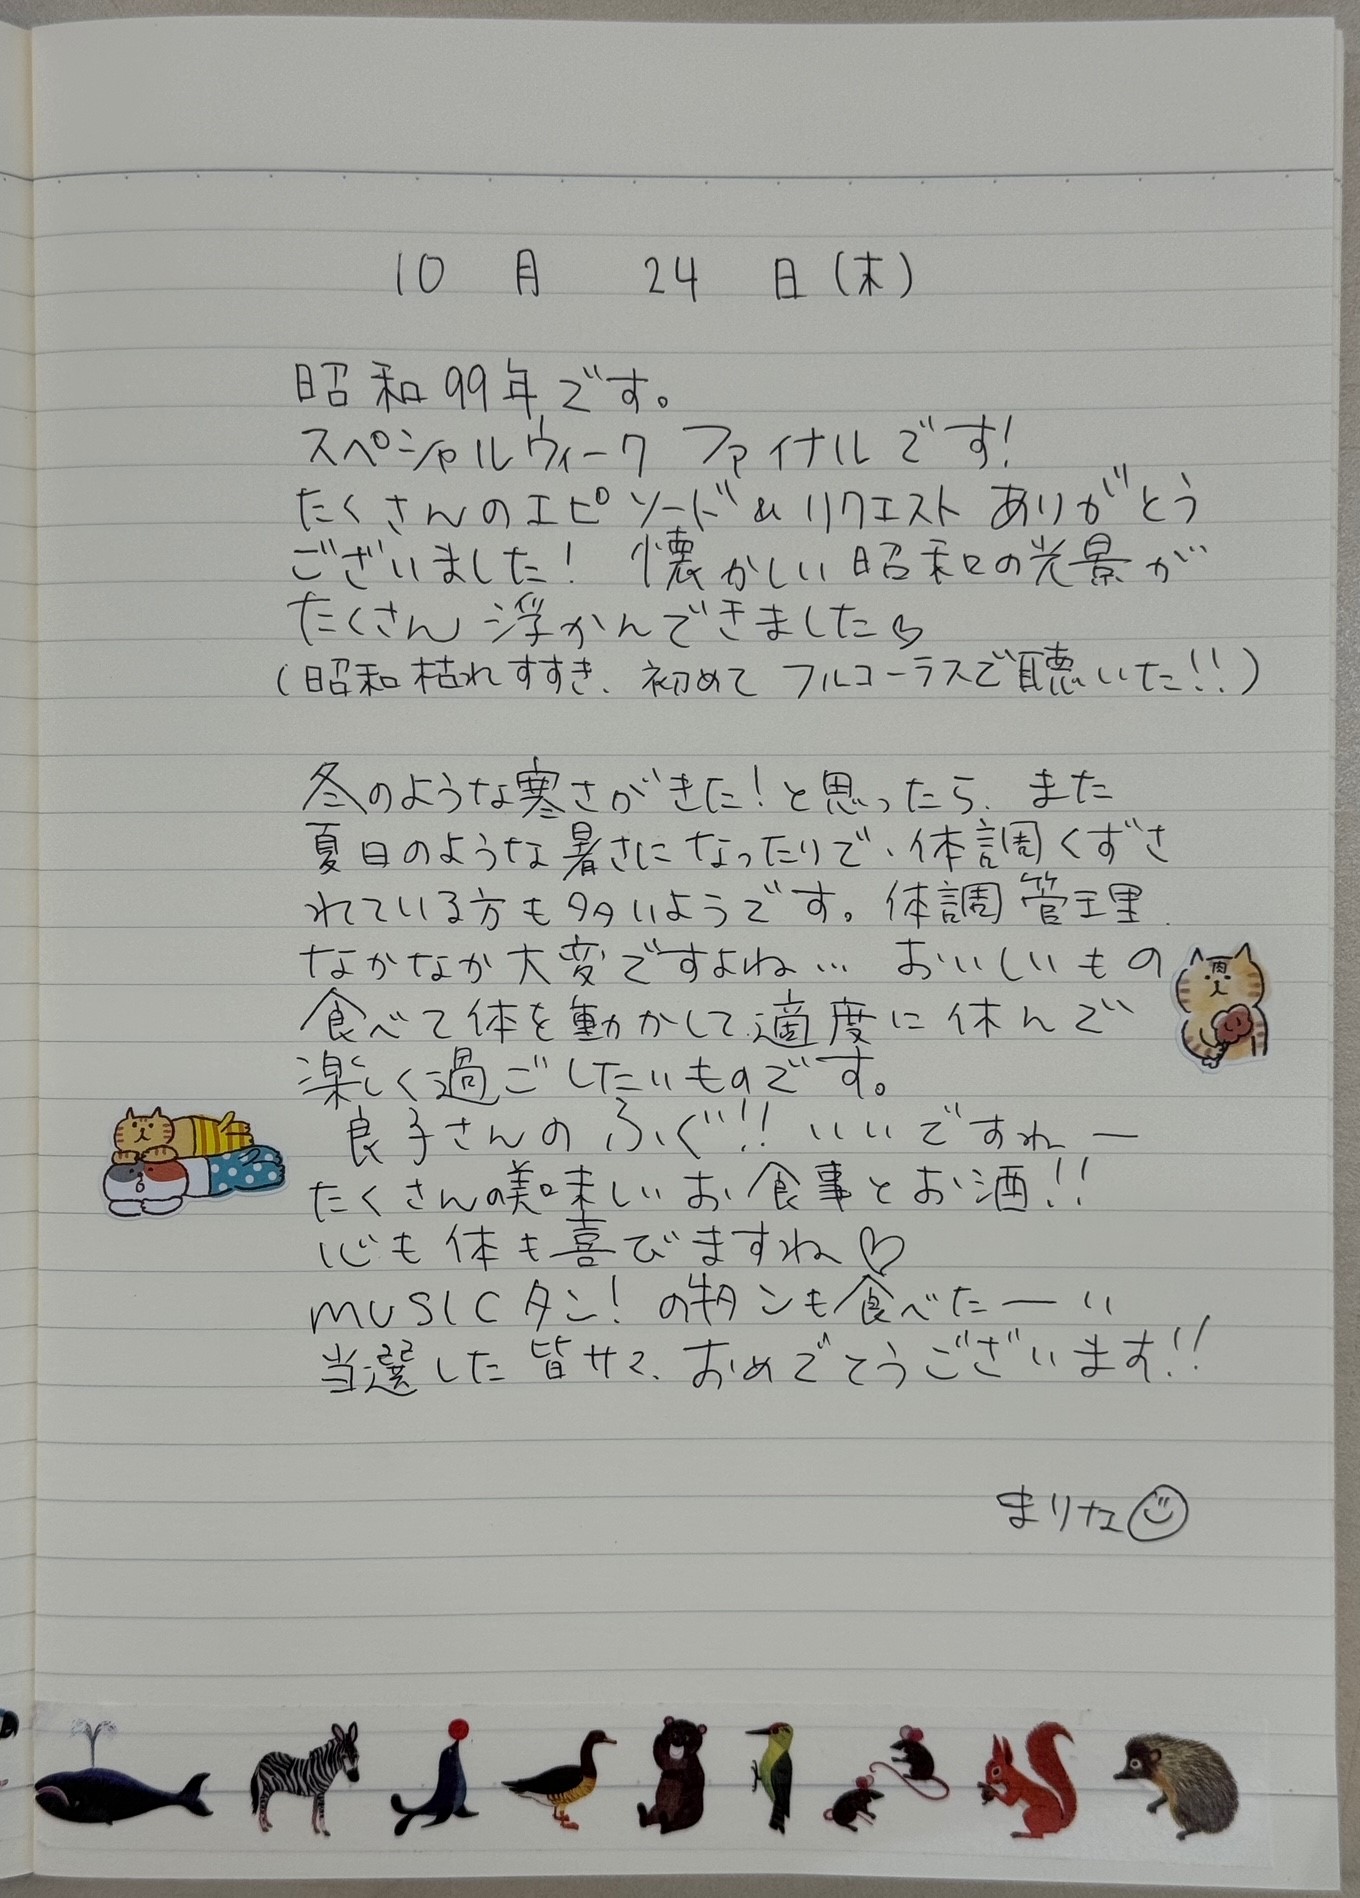 10月 24日(木)
昭和99年です。
スペシャルウィーク ファイナルです!
たくさんのエピソード&リクエスト ありがとう
ございました! 懐かしい昭和の光景が
たくさん浮かんできました♡
(昭和枯れすすき、初めてフルコーラスで聴いた!!)
冬のような寒さがきた!と思ったら、また
夏日のような暑さになったりで、体調くずさ
れている方も多いようです。体調管理
なかなか大変ですよね… おいしいもの
食べて体を動かして、適度に休んで
楽しく過ごしたいものです。
良子さんのふぐ!! いいですねー
たくさんの美味しいお食事とお酒!!
心も体も喜びますね♡
MUSICタン!の牛タンも食べたーい
当選した皆サマ、おめでとうございます!!
まりな
肉